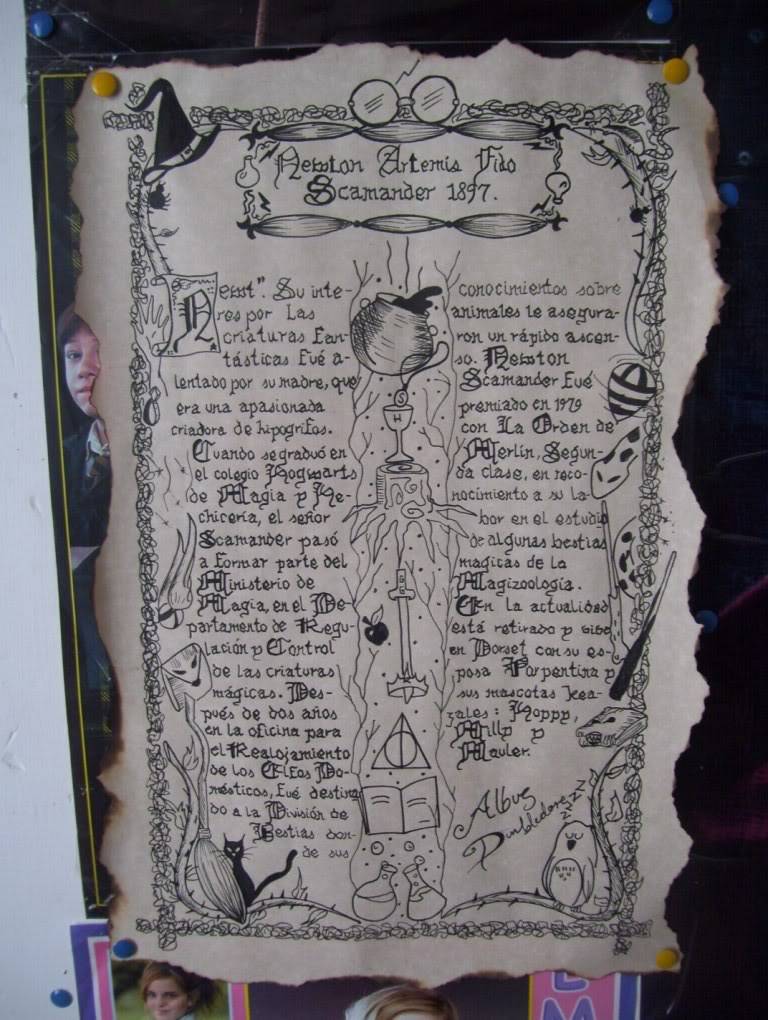 Newton Artemis Fido
Scamander 1897.
Newt". Su inte-
res por las
criaturas fan-
tásticas fué a-
lentado por su madre, que
era una apasionada
criadora de hipogrifos.
Cuando se graduó en
el colegio Hogwarts
de Magia y He-
chicería, el señor
Scamander pasó
a formar parte del
Ministerio de
Magia, en el De-
partamento de Regu-
lación y Control
de las criaturas
mágicas. Des-
pués de dos años
en la oficina para
el Realojamiento
de los Elfos Do-
mésticos, fué destina
do a la División de
Bestias don-
de sus
conocimientos sobre
animales le asegura-
ron un rápido ascen-
so. Newton
Scamander fué
premiado en 1979
con La Orden de
Merlín, Segun-
da clase, en reco-
nocimiento a su la-
bor en el estudio
de algunas bestias
magicas de la
Magizoología.
En la actualidad
está retirado y vive
en Dorset con su es-
posa Porpentina y
sus mascotas knea-
zales: Hoppy,
Milly y
Mauler.
Albus
Dumbledore
zzzz
H